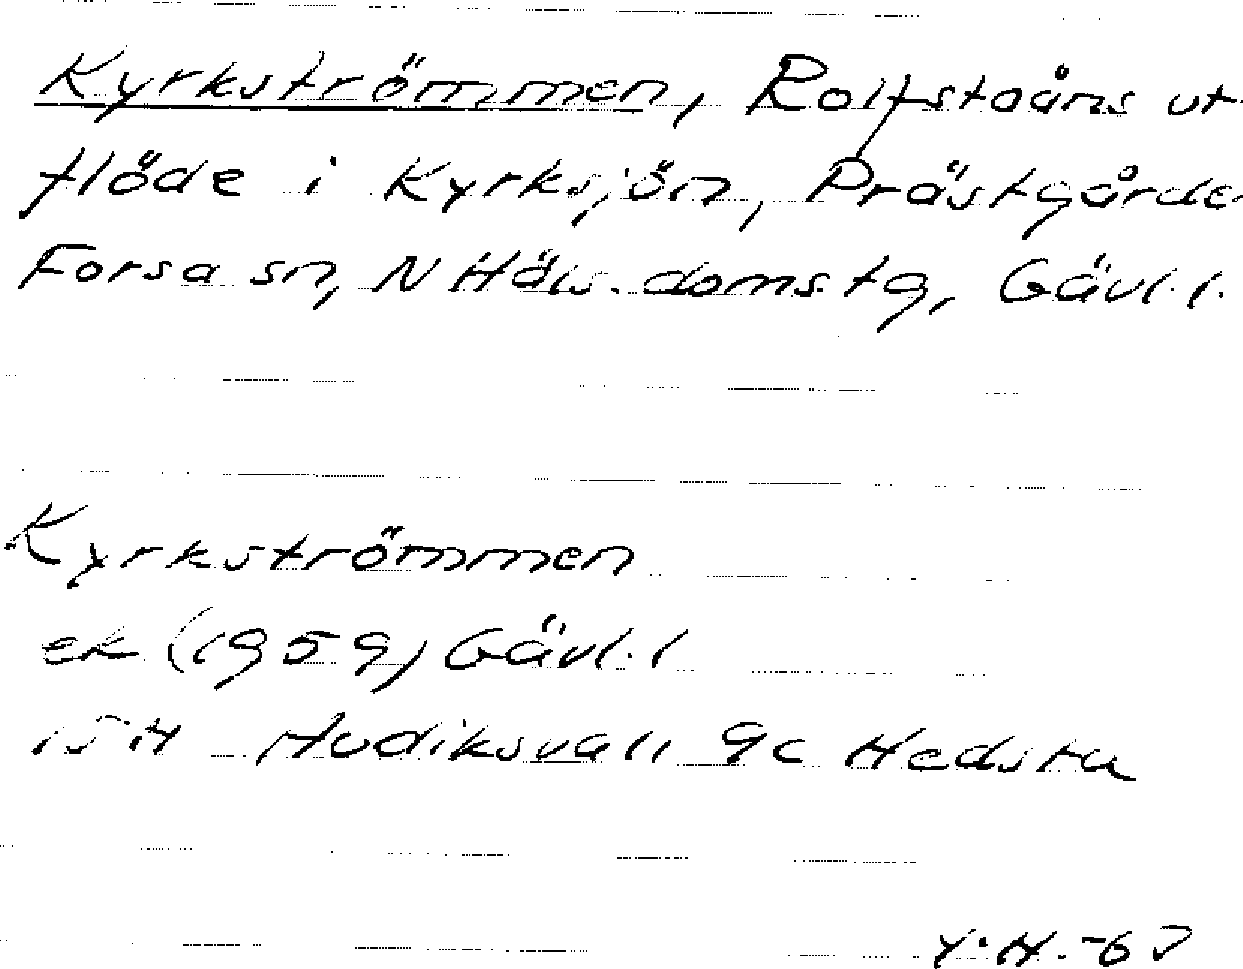 Kyrkströmmen, Rolfstaåns ut-
flöde i Kyrksjön, Prästgårde
Forsa sn, N Häls. domstg, Gävl. l.
Kyrkströmmen
ek (1959) Gävl. l
15H Hudiksvall 9c Hedsta
Y.H.-67